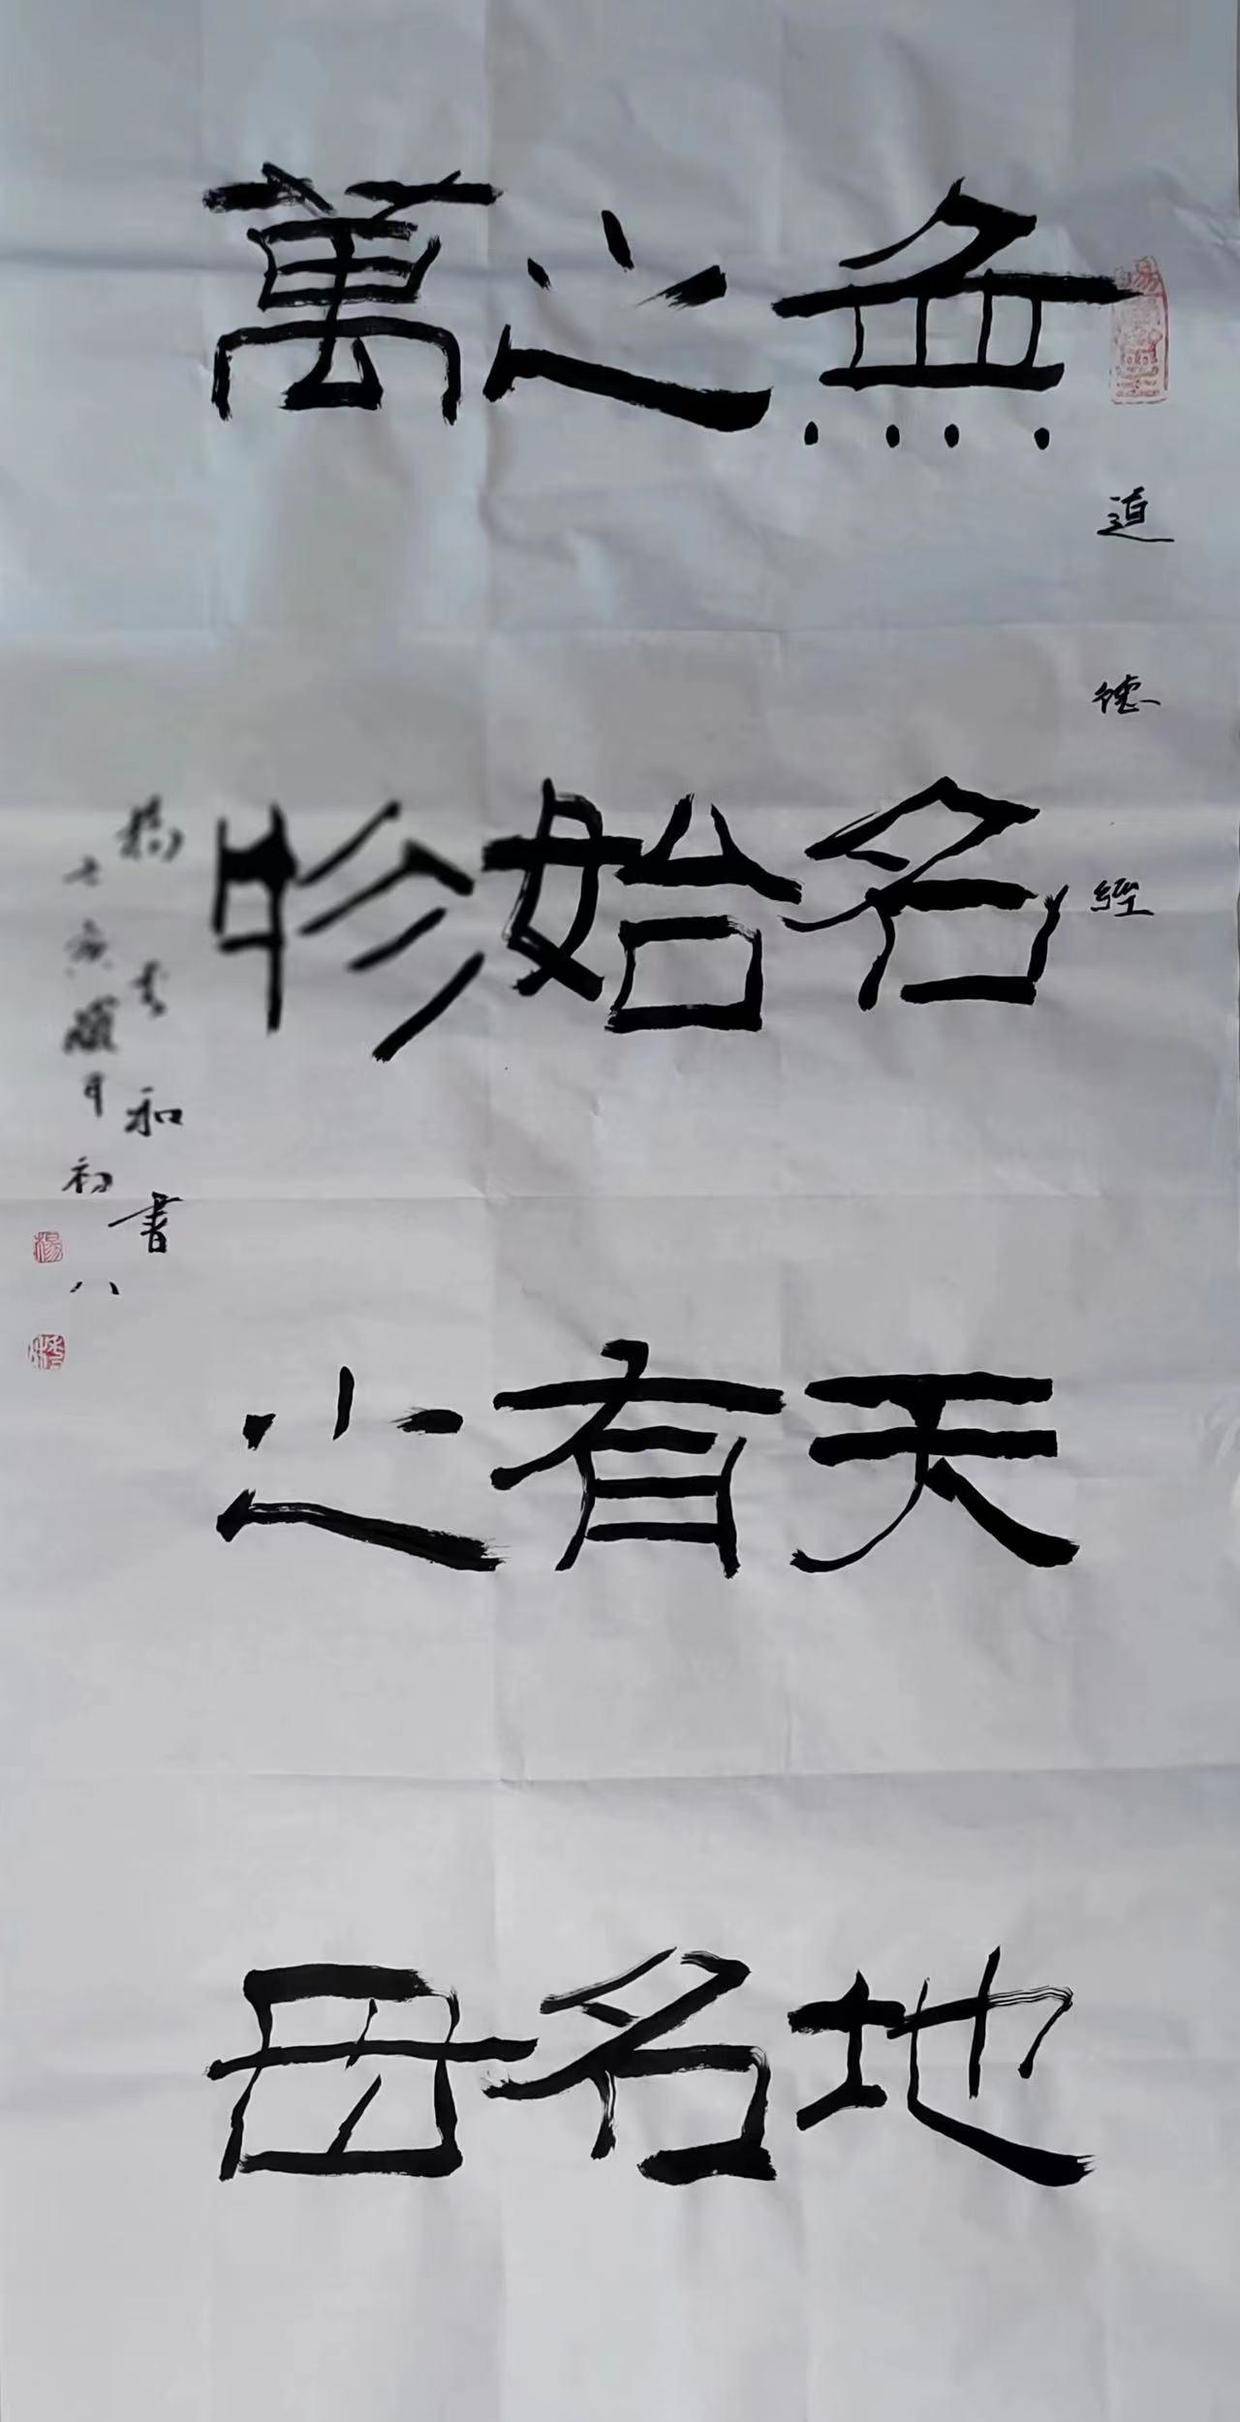 道德經
無名天地
之始有名
萬物之母
楊秀和書
七亥臘月初八
楊